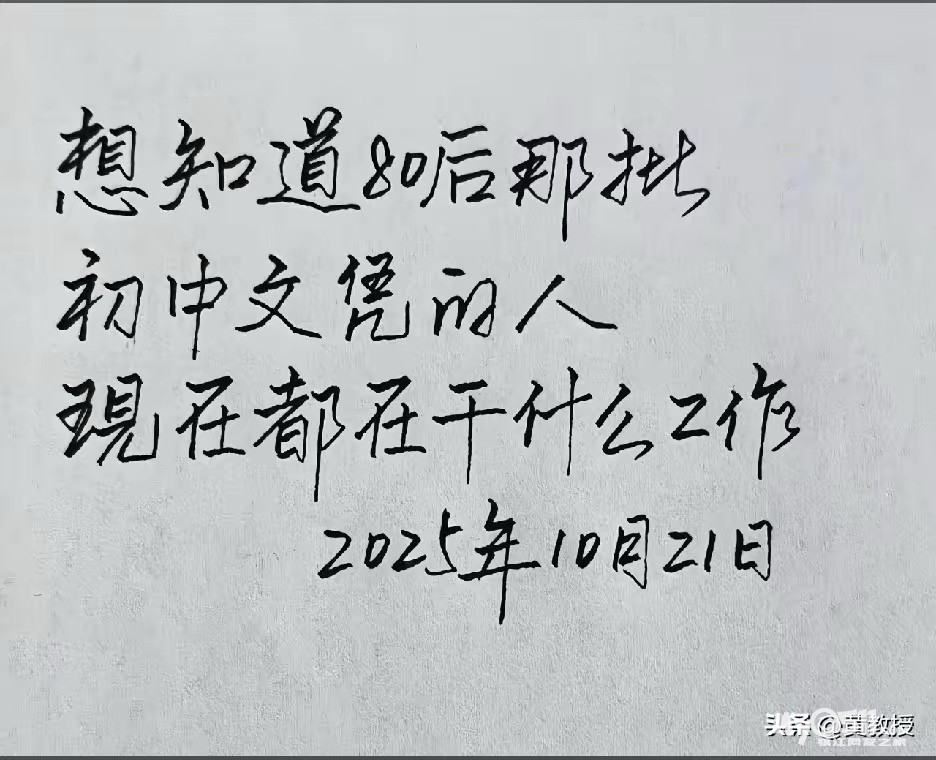 想知道80后那批
初中文凭的人
現在都在干什么工作
2025年10月21日
头条 @黄教授